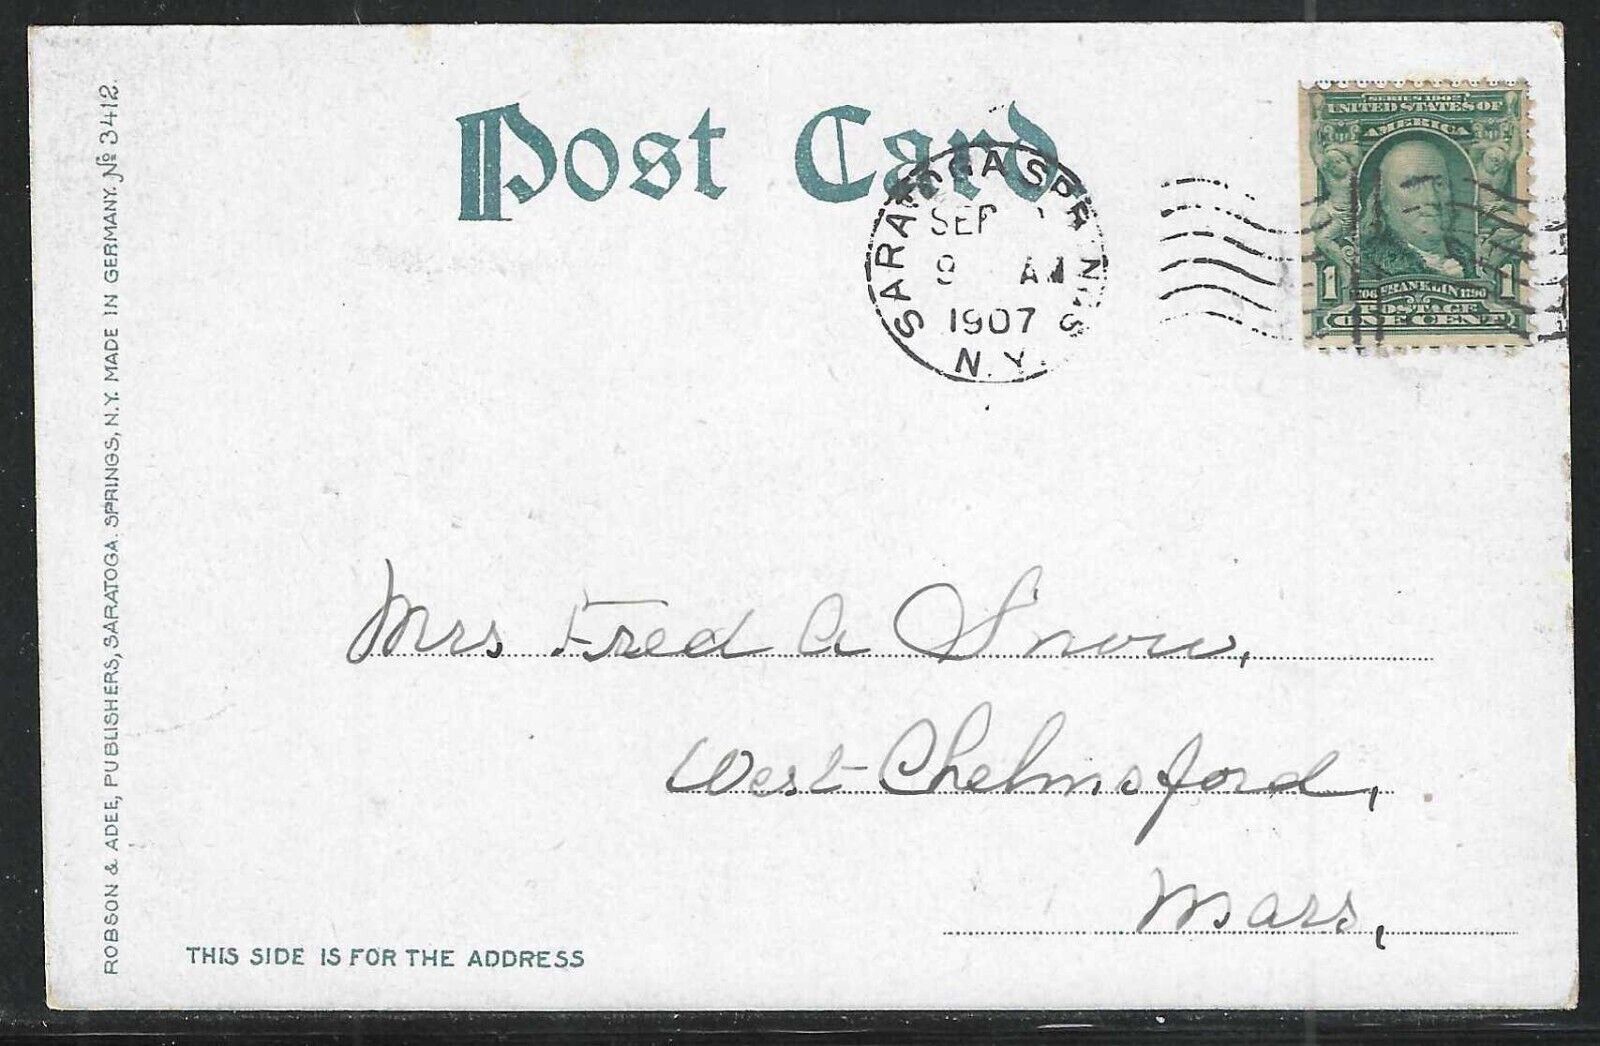 Post Card
SARATOGA SPRINGS
SEP
9 AM
1907
N.Y.
SERIES 1902
UNITED STATES OF
AMERICA
1706 FRANKLIN 1790
1 POSTAGE 1
ONE CENT
Mrs Fred A Snow,
West Chelmsford,
Mass,
THIS SIDE IS FOR THE ADDRESS
ROBSON & ADEE, PUBLISHERS, SARATOGA. SPRINGS, N.Y. MADE IN GERMANY. № 3412.